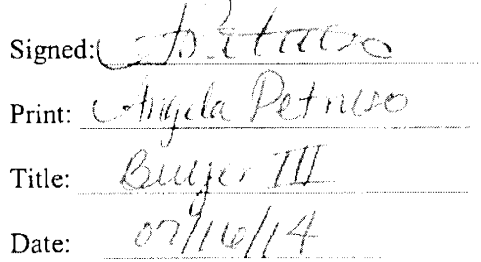 Signed: A. Petruso
Print: Angela Petruso
Title: Buyer III
Date: 07/16/14